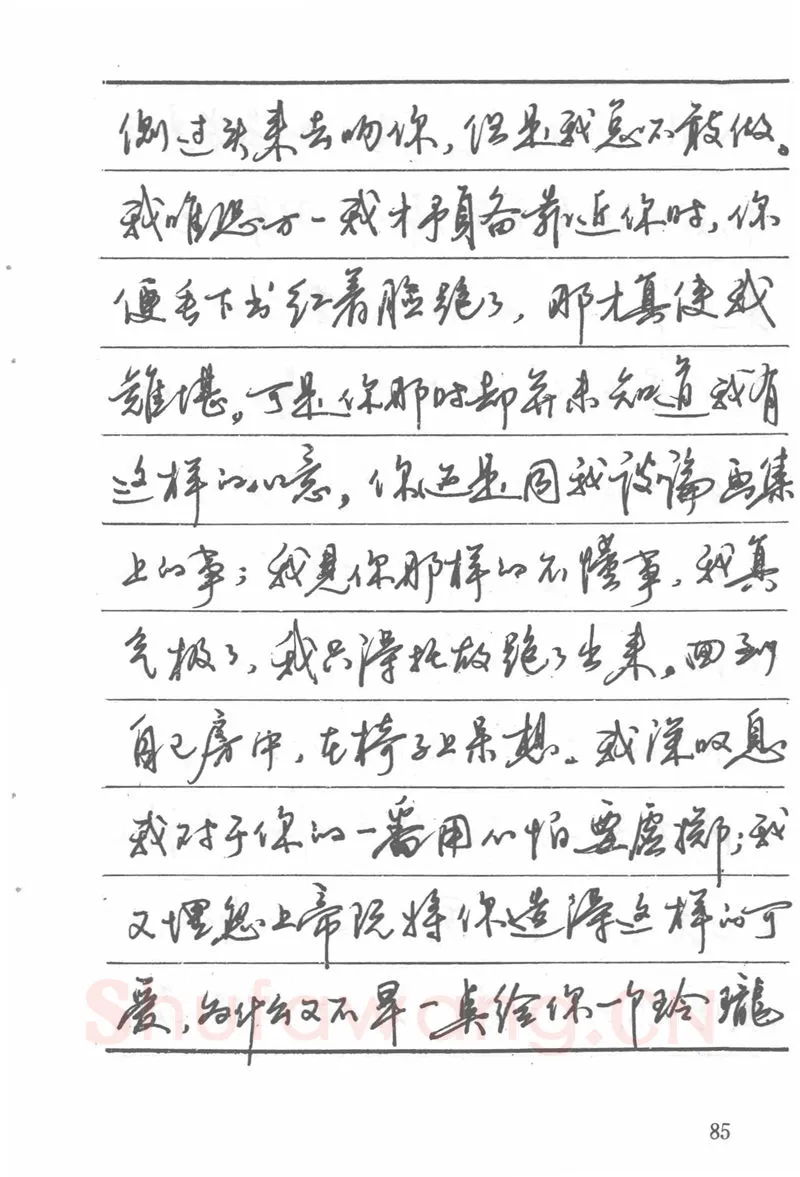 侧过头来去吻你，但是我总不敢做。
我唯恐万一我才预备靠近你时，你
便丢下书红着脸跑了，那才真使我
难堪。可是你那时却并未知道我有
这样的心意，你还是同我谈论画集
上的事；我见你那样的不懂事，我真
气极了，我只得托故跑了出来。回到
自己房中，在椅子上呆想。我深叹息
我对于你的一番用心怕要虚掷；我
又埋怨上帝既将你造得这样的可
爱，为什么又不早一点给你一个玲珑
Shufawang.CN
85